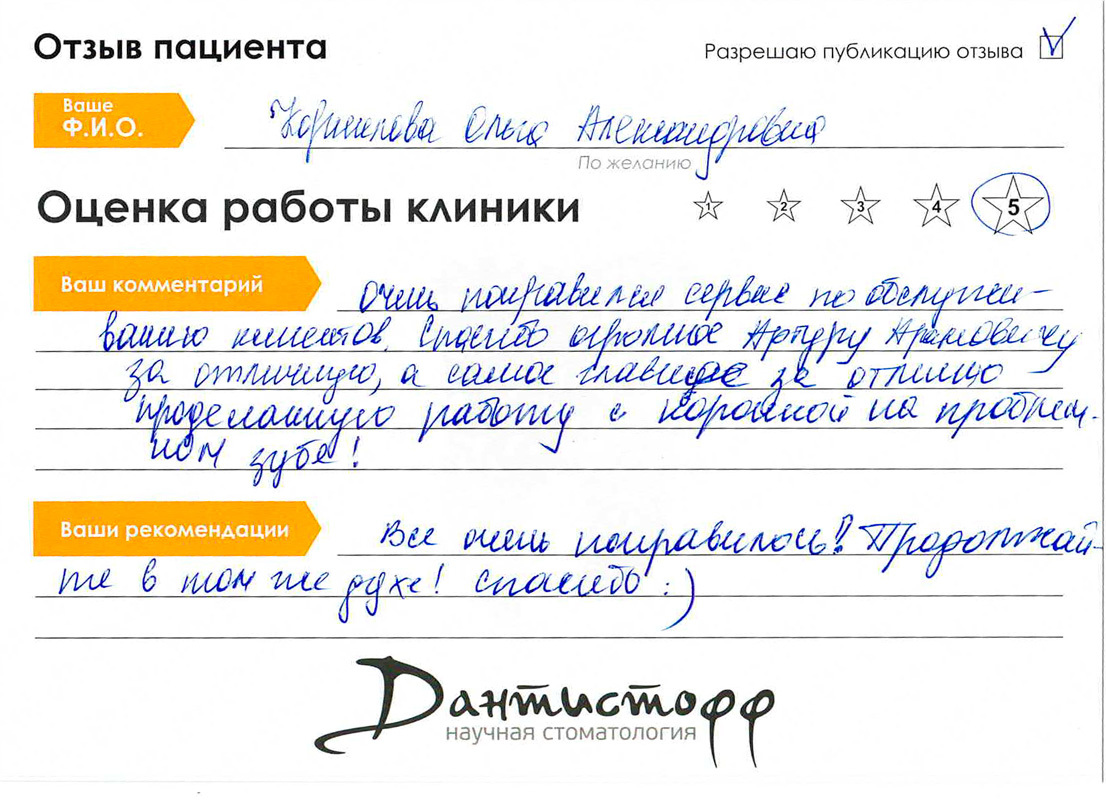 Отзыв пациента
Разрешаю публикацию отзыва
Ваше
Ф.И.О.
Ольга Александровна
По желанию
Оценка работы клиники
1 2 3 4 5
Ваш комментарий
Очень понравился сервис по обслужи-
ванию клиентов. Спасибо огромное Артуру Арамовичу
за отличную, а самое главное за отлично
проделанную работу с коронкой на проблем-
ном зубе!
Ваши рекомендации
Все очень понравилось!! Продолжай-
те в том же духе! Спасибо :)
Дантистофф
научная стоматология